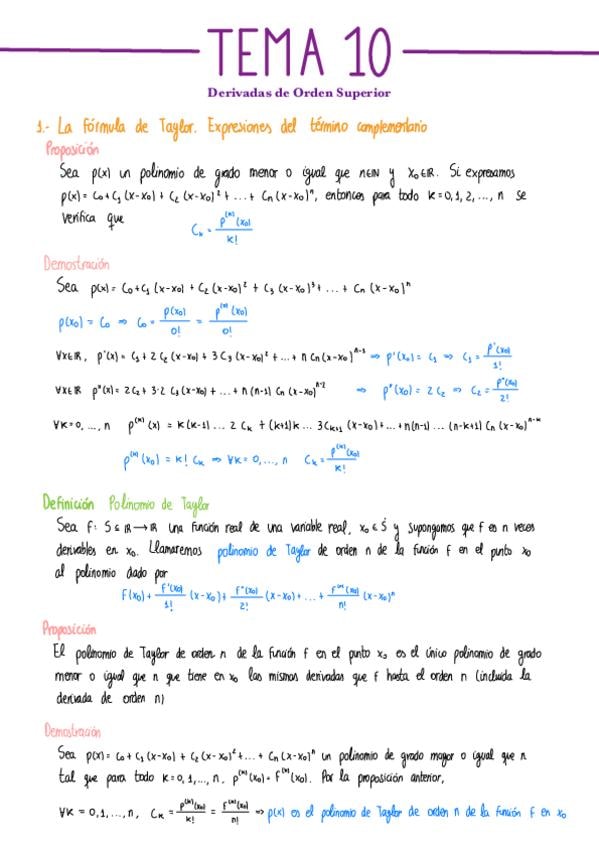 TEMA 10
Derivadas de Orden Superior
1.- La fórmula de Taylor. Expresiones del término complementario
Proposición
Sea p(x) un polinomio de grado menor o igual que n∈ℕ y x₀∈ℝ. Si expresamos
p(x) = C₀+C₁(x-x₀) + C₂(x-x₀)² + ... + Cₙ(x-x₀)ⁿ, entonces para todo k=0,1,2,...,n se
verifica que Cₖ = p⁽ᵏ⁾(x₀)/k!
Demostración
Sea p(x) = C₀+C₁(x-x₀) + C₂(x-x₀)² + C₃(x-x₀)³ + ... + Cₙ(x-x₀)ⁿ
p(x₀) = C₀ ⇒ C₀ = p(x₀)/0! = p⁽⁰⁾(x₀)/0!
∀x∈ℝ, p'(x) = C₁ + 2C₂(x-x₀) + 3C₃(x-x₀)² + ... + nCₙ(x-x₀)ⁿ⁻¹ ⇒ p'(x₀) = C₁ ⇒ C₁ = p'(x₀)/1!
∀x∈ℝ p''(x) = 2C₂ + 3·2 C₃(x-x₀) + ... + n(n-1) Cₙ(x-x₀)ⁿ⁻² ⇒ p''(x₀) = 2C₂ ⇒ C₂ = p''(x₀)/2!
∀k=0,...,n p⁽ᵏ⁾(x) = k(k-1)...2Cₖ + (k+1)k...3Cₖ₊₁(x-x₀) + ... + n(n-1)...(n-k+1)Cₙ(x-x₀)ⁿ⁻ᵏ
p⁽ᵏ⁾(x₀) = k! Cₖ ⇒ ∀k=0,...,n Cₖ = p⁽ᵏ⁾(x₀)/k!
Definición Polinomio de Taylor
Sea f: S⊆ℝ→ℝ una función real de una variable real, x₀∈S̊ y supongamos que f es n veces
derivables en x₀. Llamaremos polinomio de Taylor de orden n de la función f en el punto x₀
al polinomio dado por
f(x₀) + f'(x₀)/1! (x-x₀) + f''(x₀)/2! (x-x₀) + ... + f⁽ⁿ⁾(x₀)/n! (x-x₀)ⁿ
Proposición
El polinomio de Taylor de orden n de la función f en el punto x₀ es el único polinomio de grado
menor o igual que n que tiene en x₀ las mismas derivadas que f hasta el orden n (incluida la
derivada de orden n)
Demostración
Sea p(x) = C₀+C₁(x-x₀) + C₂(x-x₀)² + ... + Cₙ(x-x₀)ⁿ un polinomio de grado mayor o igual que n
tal que para todo k=0,1,...,n, p⁽ᵏ⁾(x₀) = f⁽ᵏ⁾(x₀). Por la proposición anterior,
∀k = 0,1,...,n, Cₖ = p⁽ᵏ⁾(x₀)/k! = f⁽ᵏ⁾(x₀)/n! ⇒ p(x) es el polinomio de Taylor de orden n de la función f en x₀